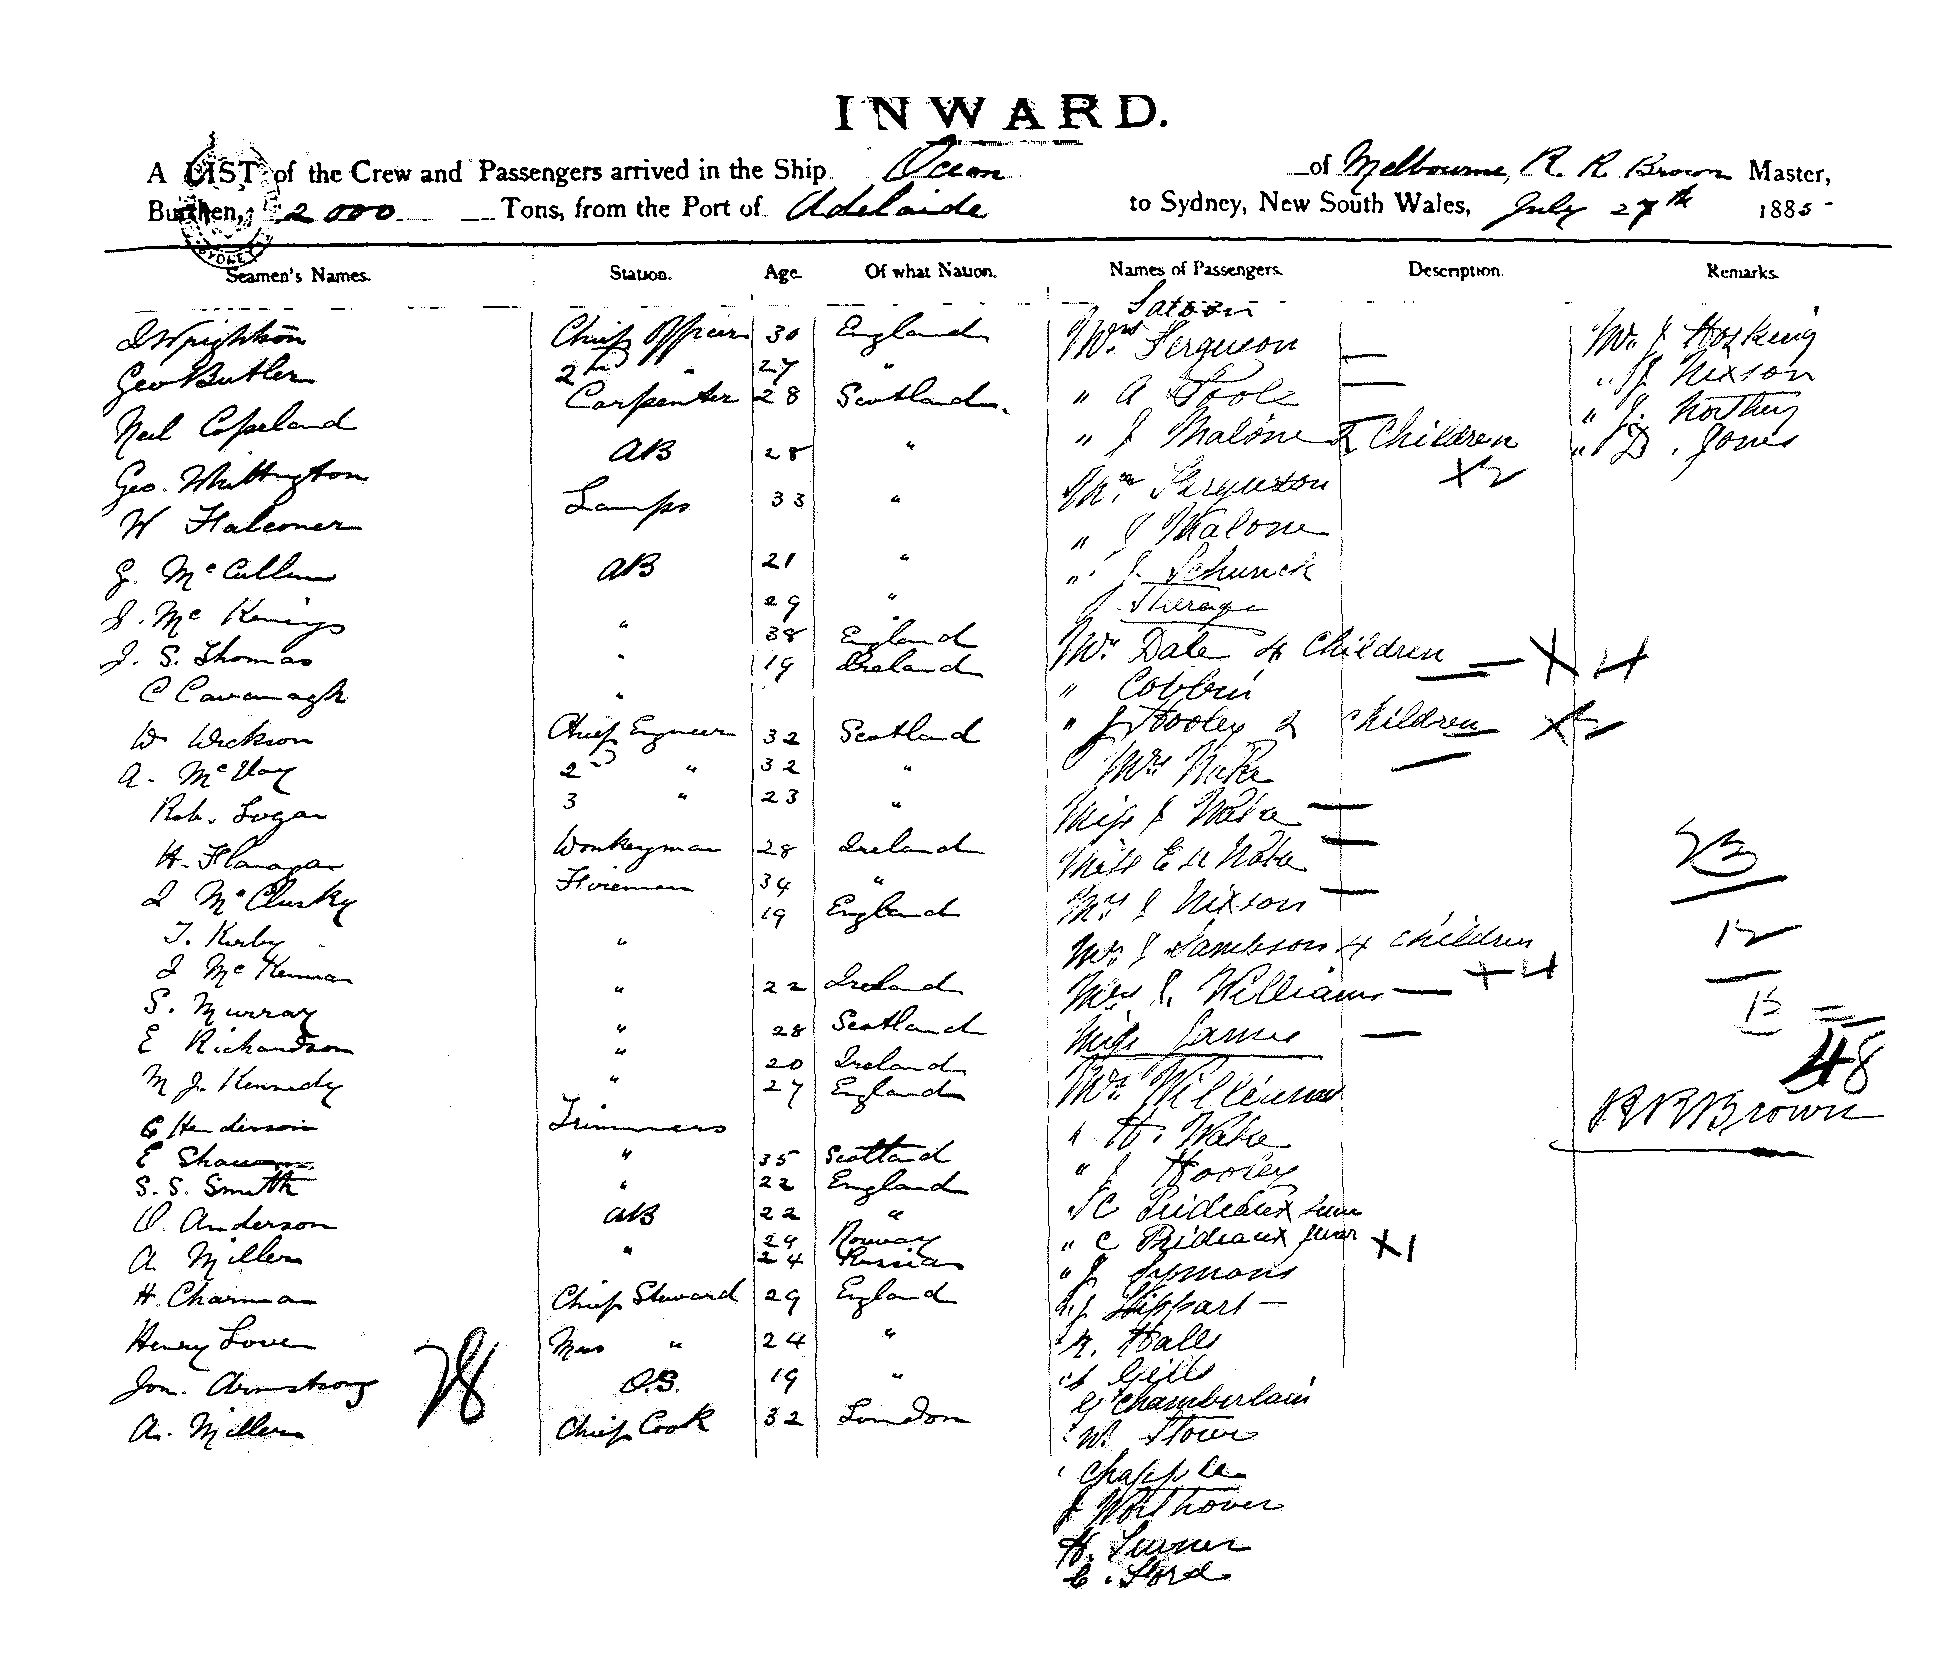 INWARD.
A LIST of the Crew and Passengers arrived in the Ship Ocean of Melbourne, R. R Brown Master,
Burthen, 2000 Tons, from the Port of Adelaide to Sydney, New South Wales, July 27th 1885
SYDNEY
Seamen's Names. Station. Age. Of what Nation. Names of Passengers. Description. Remarks.
Saloon
J Wrightson Chief Officer 30 England Mrs Ferguson — Mr. J Hosking
Geo Butler 2nd " 27 " " A Poole — " J. Nixson
Neil Copeland Carpenter 28 Scotland " J Malone & Children " J. Northey
Geo. Whittington AB 28 " X2 " D. Jones
W Falconer Lamps 33 " Mr Ferguson
" J Malone
G. McCullum AB 21 " " J. Schunck
J. Mc " 29 " Steerage
J. S. Thomas " 38 England Mrs Dale 4 Children X 4
C Cavanagh " 19 Ireland "
W Dickson Chief Engineer 32 Scotland " J Hooley 2 children X 2
A. McVay 2nd " 32 " Mrs
Rob. Logan 3 " 23 " Miss J Wake —
H. Flanagan Donkeyman 28 Ireland Miss E Wake — 23
J McClusky Fireman 34 " Mrs J Nixson —
T. Kirby " 19 England Mrs J Sambson 4 children 12
J McKennan " 22 Ireland Mrs J. Williams — X4
S. Murray " 28 Scotland Miss James — 13
E Richardson " 20 Ireland Mr Williams 48
M J. Kennedy " 27 England " H. Wake R R Brown
G Henderson Trimmers " J Hooley
E Shaw " 35 Scotland " C Prideaux senr
S. S. Smith " 22 England " C Prideaux junr X1
O. Anderson AB 22 " " J. Symons
A Millen " 29 Norway
24 Russia
H. Charman Chief Steward 29 England J. Hippart —
Henry Love Mess " 24 " Halls
Jon. Armstrong O.S. 19 " Gills
28
A. Millen Chief Cook 32 London G Chamberlain
W.
Chapple
J
H. Turner
C. Ford